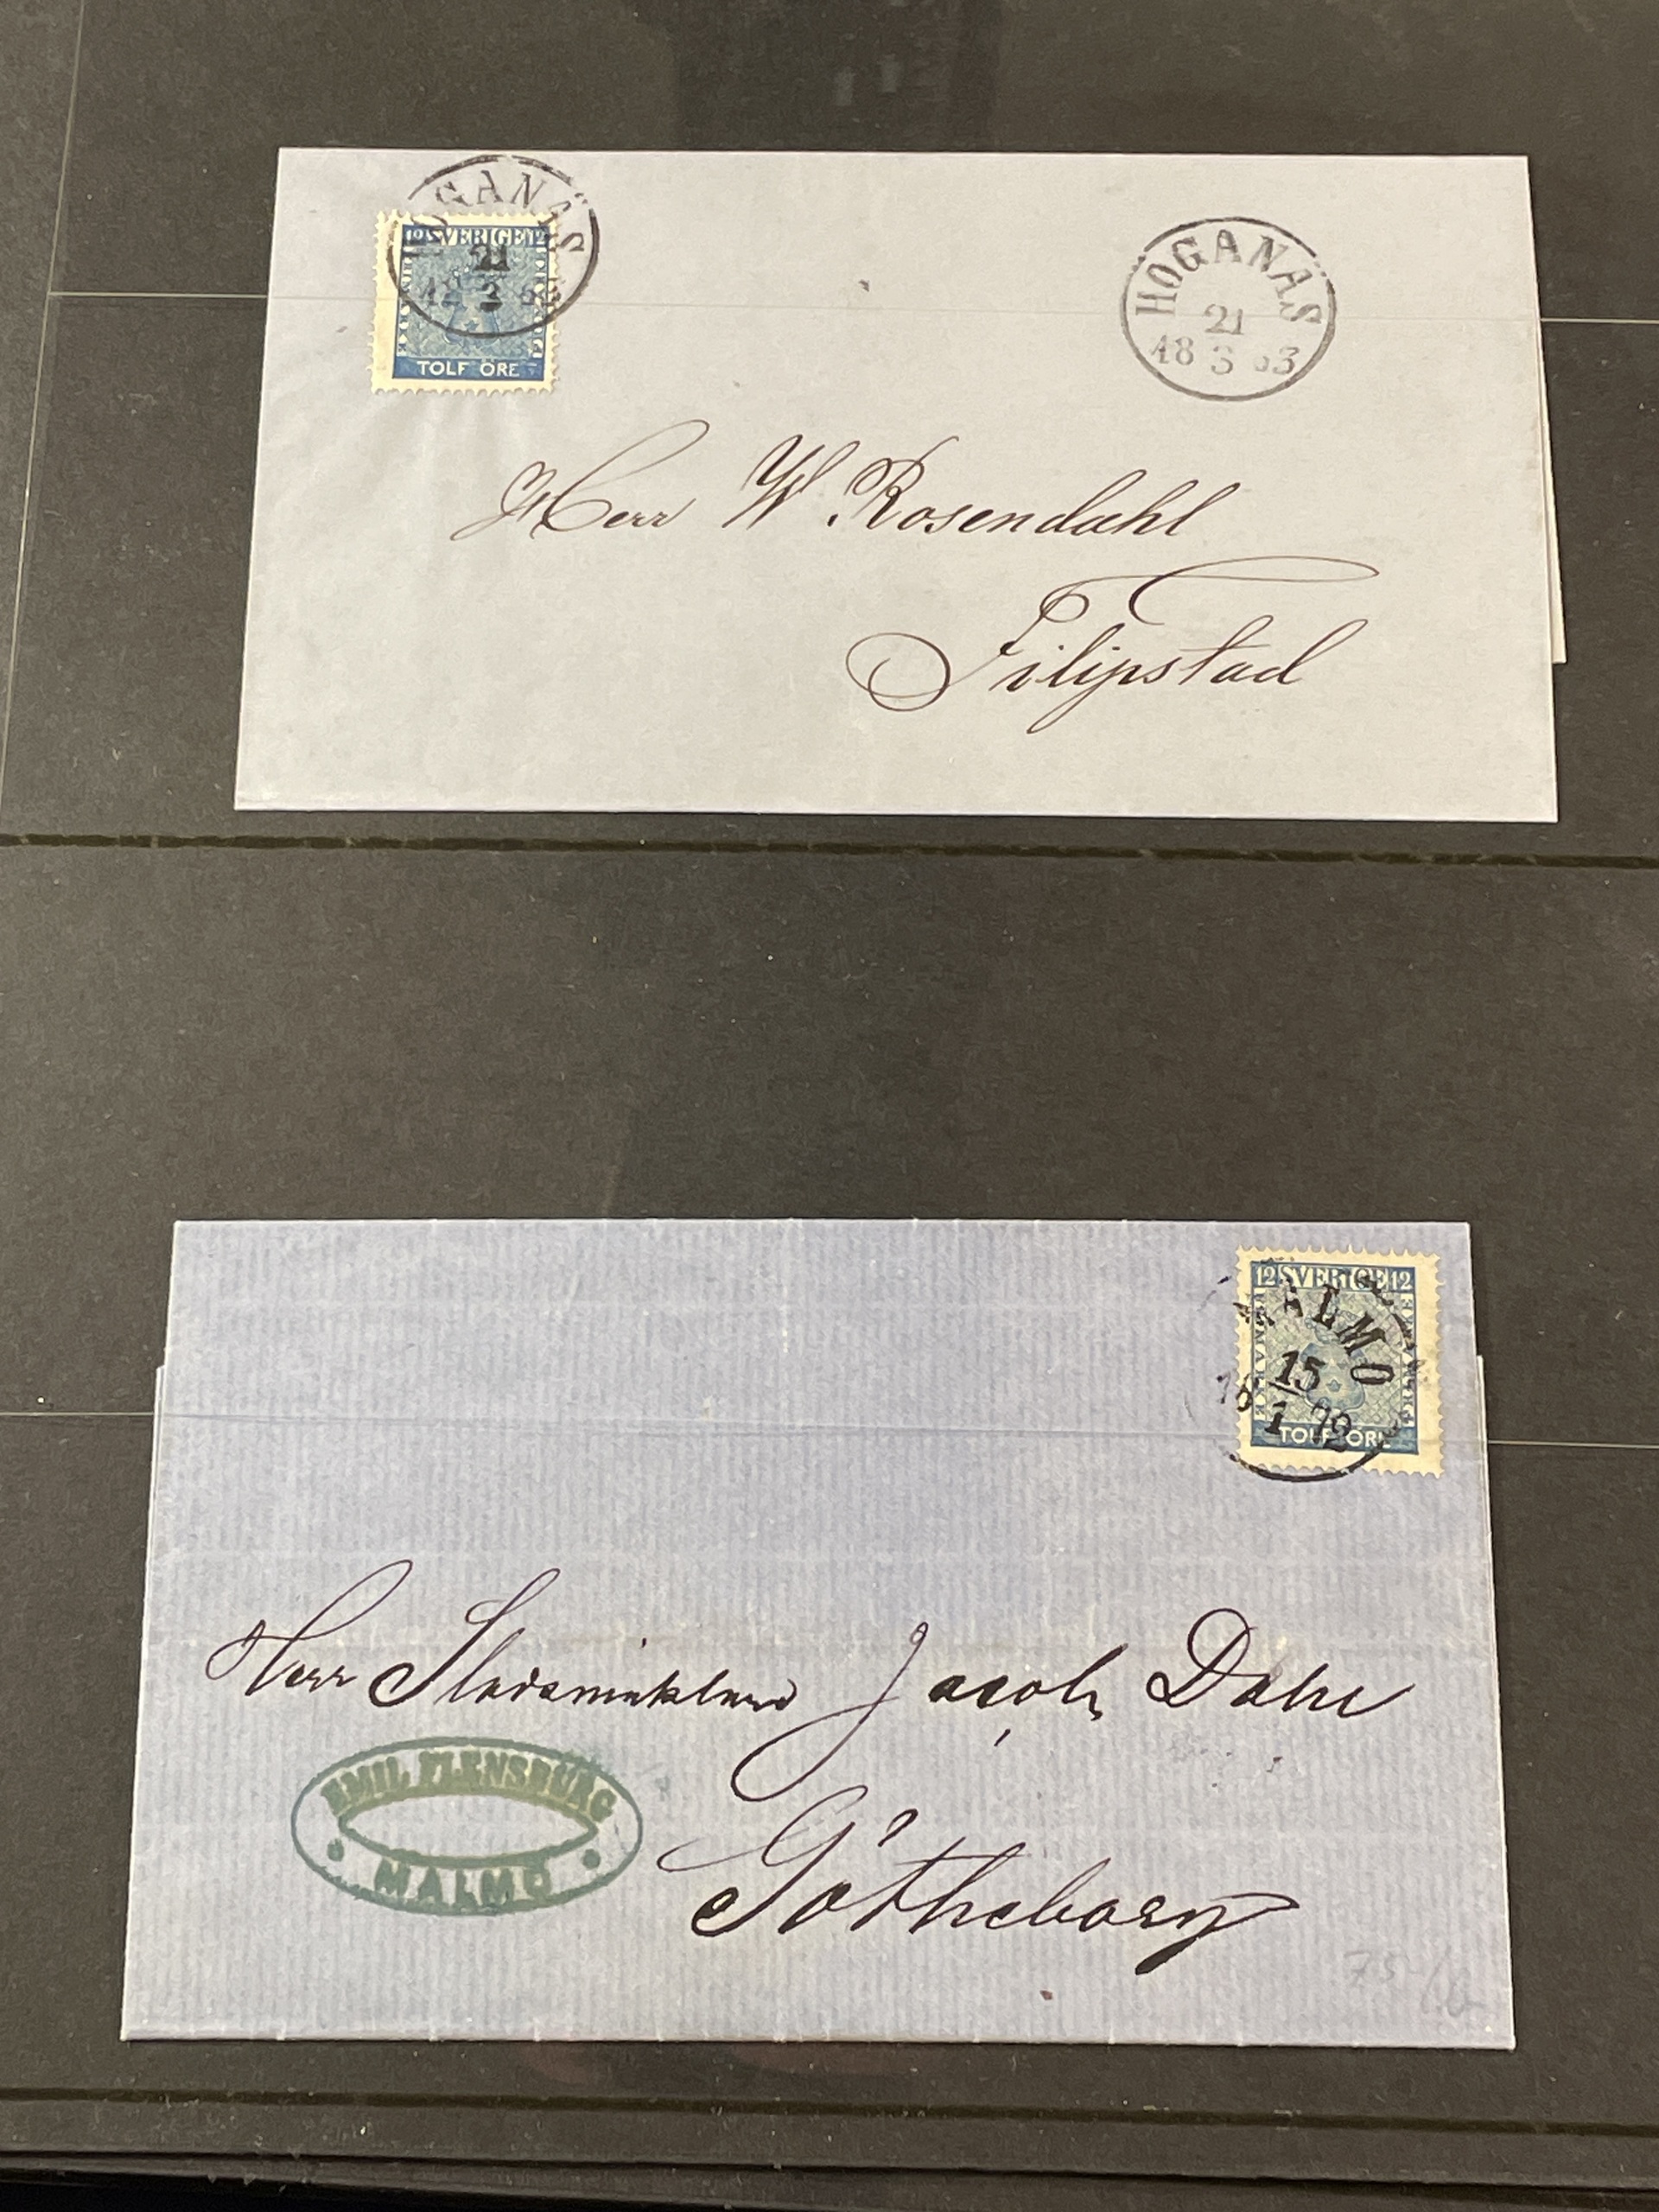 HÖGANÄS
21
18 3 63
12 SVERIGE 12
TOLF ÖRE
HÖGANÄS
21
18 3 63
Herr W Rosendahl
Filipstad
12 SVERIGE 12
MALMÖ
15
18 1 72
TOLF ÖRE
Herr Stadsmäklare Jacob Dahl
EMIL FLENSBURG
MALMÖ
Götheborg